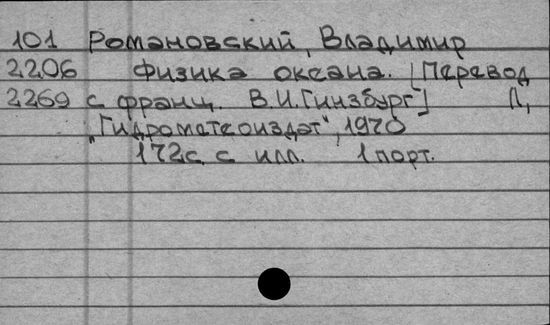 101 Романовский, Владимир
2206 Физика океана. [Перевод
2269 с франц. В.И.Гинзбург] Л.,
„Гидрометеоиздат", 1970
172с. с илл. 1 порт.